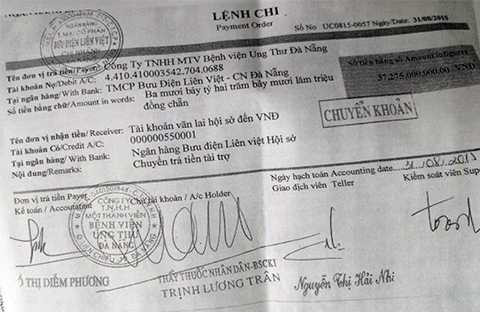 LỆNH CHI
Payment Order
Số No UC0815-0057 Ngày/Date: 31/08/2015
NGÂN HÀNG
T.M.C.P
BƯU ĐIỆN LIÊN VIỆT
Tên đơn vị trả tiền/Payer: Công Ty TNHH MTV Bệnh viện Ung Thư Đà Nẵng
Tài khoản Nợ/Debit A/C: 4.410.410003542.704.0688
Tại ngân hàng/With Bank: TMCP Bưu Điện Liên Việt - CN Đà Nẵng
Số tiền bằng chữ/Amount in words: Ba mươi bảy tỷ hai trăm bảy mươi lăm triệu
đồng chẵn
Số tiền bằng số Amount in figures
37,275,000,000.00 VNĐ
CHUYỂN KHOẢN
Tên đơn vị nhận tiền/Receiver: Tài khoản vãn lai hội sở đến VNĐ
Tài khoản Có/Credit A/C: 000000550001
Tại ngân hàng/With Bank: Ngân hàng Bưu điện Liên việt Hội sở
Nội dung/Remarks: Chuyển trả tiền tài trợ
Ngày hạch toán Accounting date 31/08/2015
Đơn vị trả tiền Payer
Kế toán / Accountant
Chủ tài khoản / A/c Holder
Giao dịch viên Teller
Kiểm soát viên Sup
CÔNG TY
T.N.H.H
MỘT THÀNH VIÊN
BỆNH VIỆN
UNG THƯ
ĐÀ NẴNG
THỊ DIỄM PHƯƠNG
THẦY THUỐC NHÂN DÂN-BSCKI
TRỊNH LƯƠNG TRÂN
Nguyễn Thị Hải Nhi